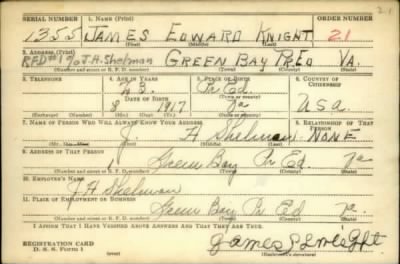 SERIAL NUMBER 1. NAME (Print) ORDER NUMBER
1355 JAMES EDWARD KNIGHT 21
(First) (Middle) (Last)
2. ADDRESS (Print)
RFD#1 % J.H. Shelman GREEN BAY Pr Ed VA.
(Number and street or R. F. D. number) (Town) (County) (State)
3. TELEPHONE 4. AGE IN YEARS 5. PLACE OF BIRTH 6. COUNTRY OF CITIZENSHIP
23 Pr Ed
DATE OF BIRTH (Town or county) USA.
8 1917 Va
7. NAME OF PERSON WHO WILL ALWAYS KNOW YOUR ADDRESS 8. RELATIONSHIP OF THAT PERSON
J. H Shelman NONE
(First) (Middle) (Last)
9. ADDRESS OF THAT PERSON
1 Green Bay Pr Ed Va
(Number and street or R. F. D. number) (Town) (County) (State)
10. EMPLOYER'S NAME
J H Shelman
11. PLACE OF EMPLOYMENT OR BUSINESS
Green Bay Pr Ed Va.
(Number and street or R. F. D. number) (Town) (County) (State)
I AFFIRM THAT I HAVE VERIFIED ABOVE ANSWERS AND THAT THEY ARE TRUE.
REGISTRATION CARD
D. S. S. Form 1 James